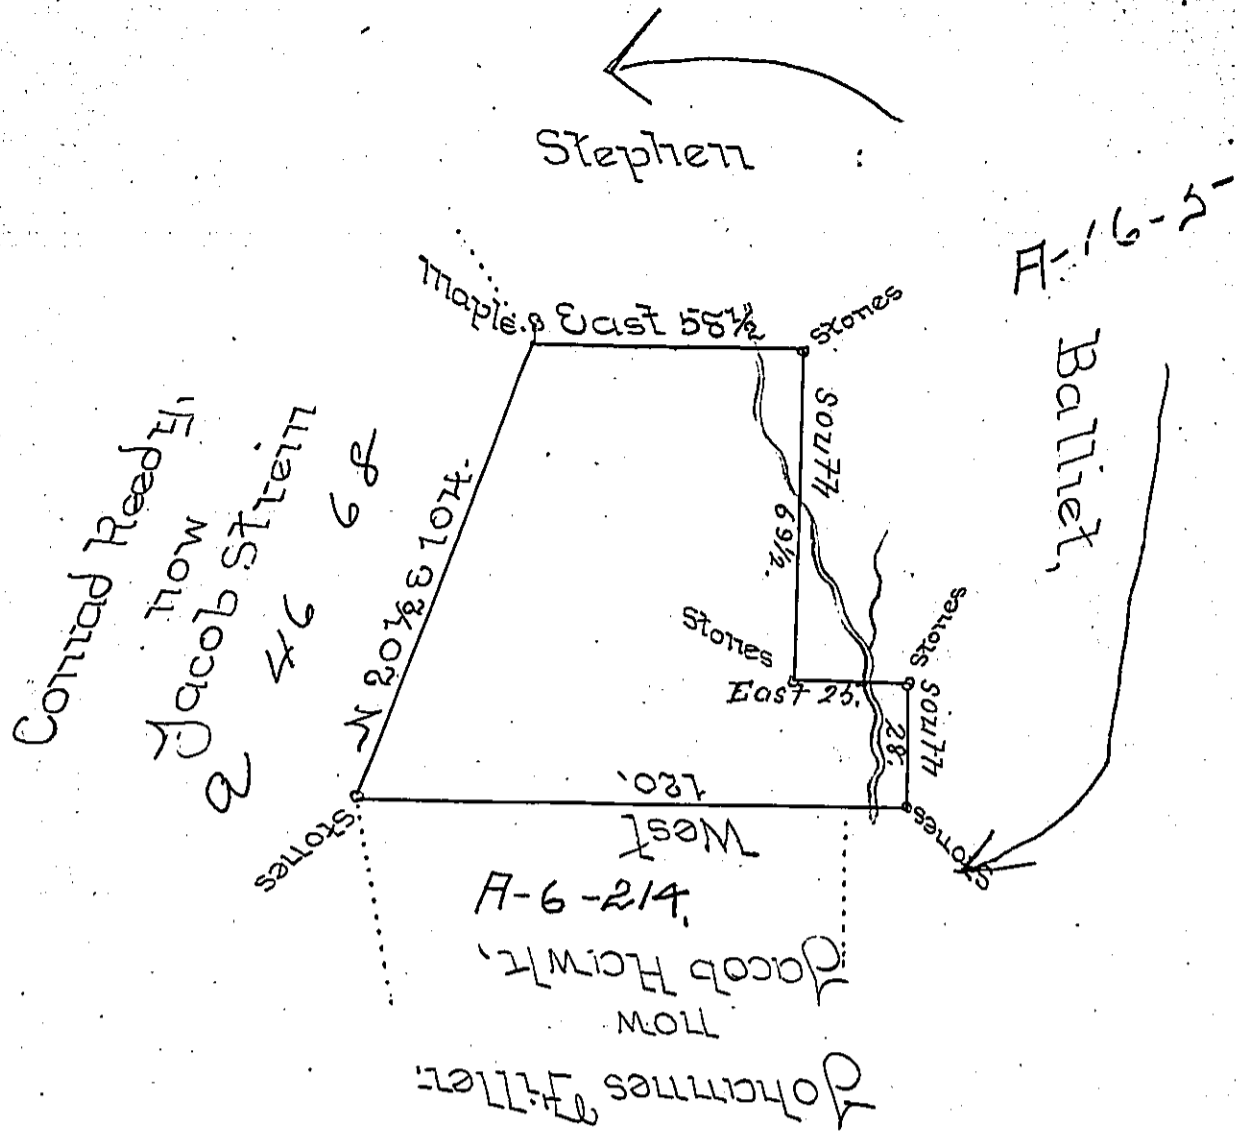 Stephen
A-16-5
Balliet,
Maple.
East 58½
Stones
South
69½.
Stones
East 25.
Stones
South
28.
Stones
West
120.
Stones
N 20½ E 104.
Conrad Reed
now
Jacob Strein
46
68
A-6-214.
now
Johannes Filler.